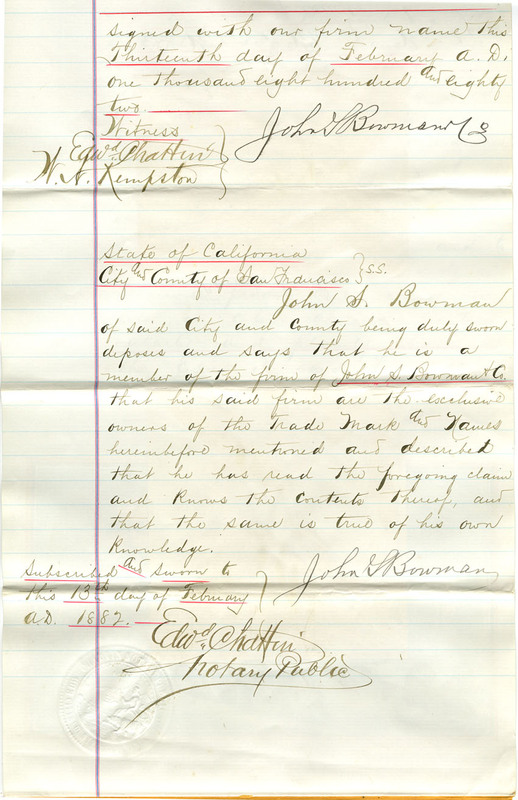 signed with our firm name this
Thirteenth day of February A.D.
one thousand eight hundred and eighty
two.
Witness
John S Bowman & Co
Edwd Chattin
W. A. Kempston
State of California
City and County of San Francisco } S.S.
John S. Bowman
of said City and County being duly sworn
deposes and says that he is a
member of the firm of John S. Bowman & Co.
that his said firm are the exclusive
owners of the Trade Mark and Names
hereinbefore mentioned and described
that he has read the foregoing claim
and knows the contents thereof, and
that the same is true of his own
knowledge.
Subscribed and sworn to
this 13th day of February
A.D. 1882.
John S Bowman
Edwd Chattin
Notary Public